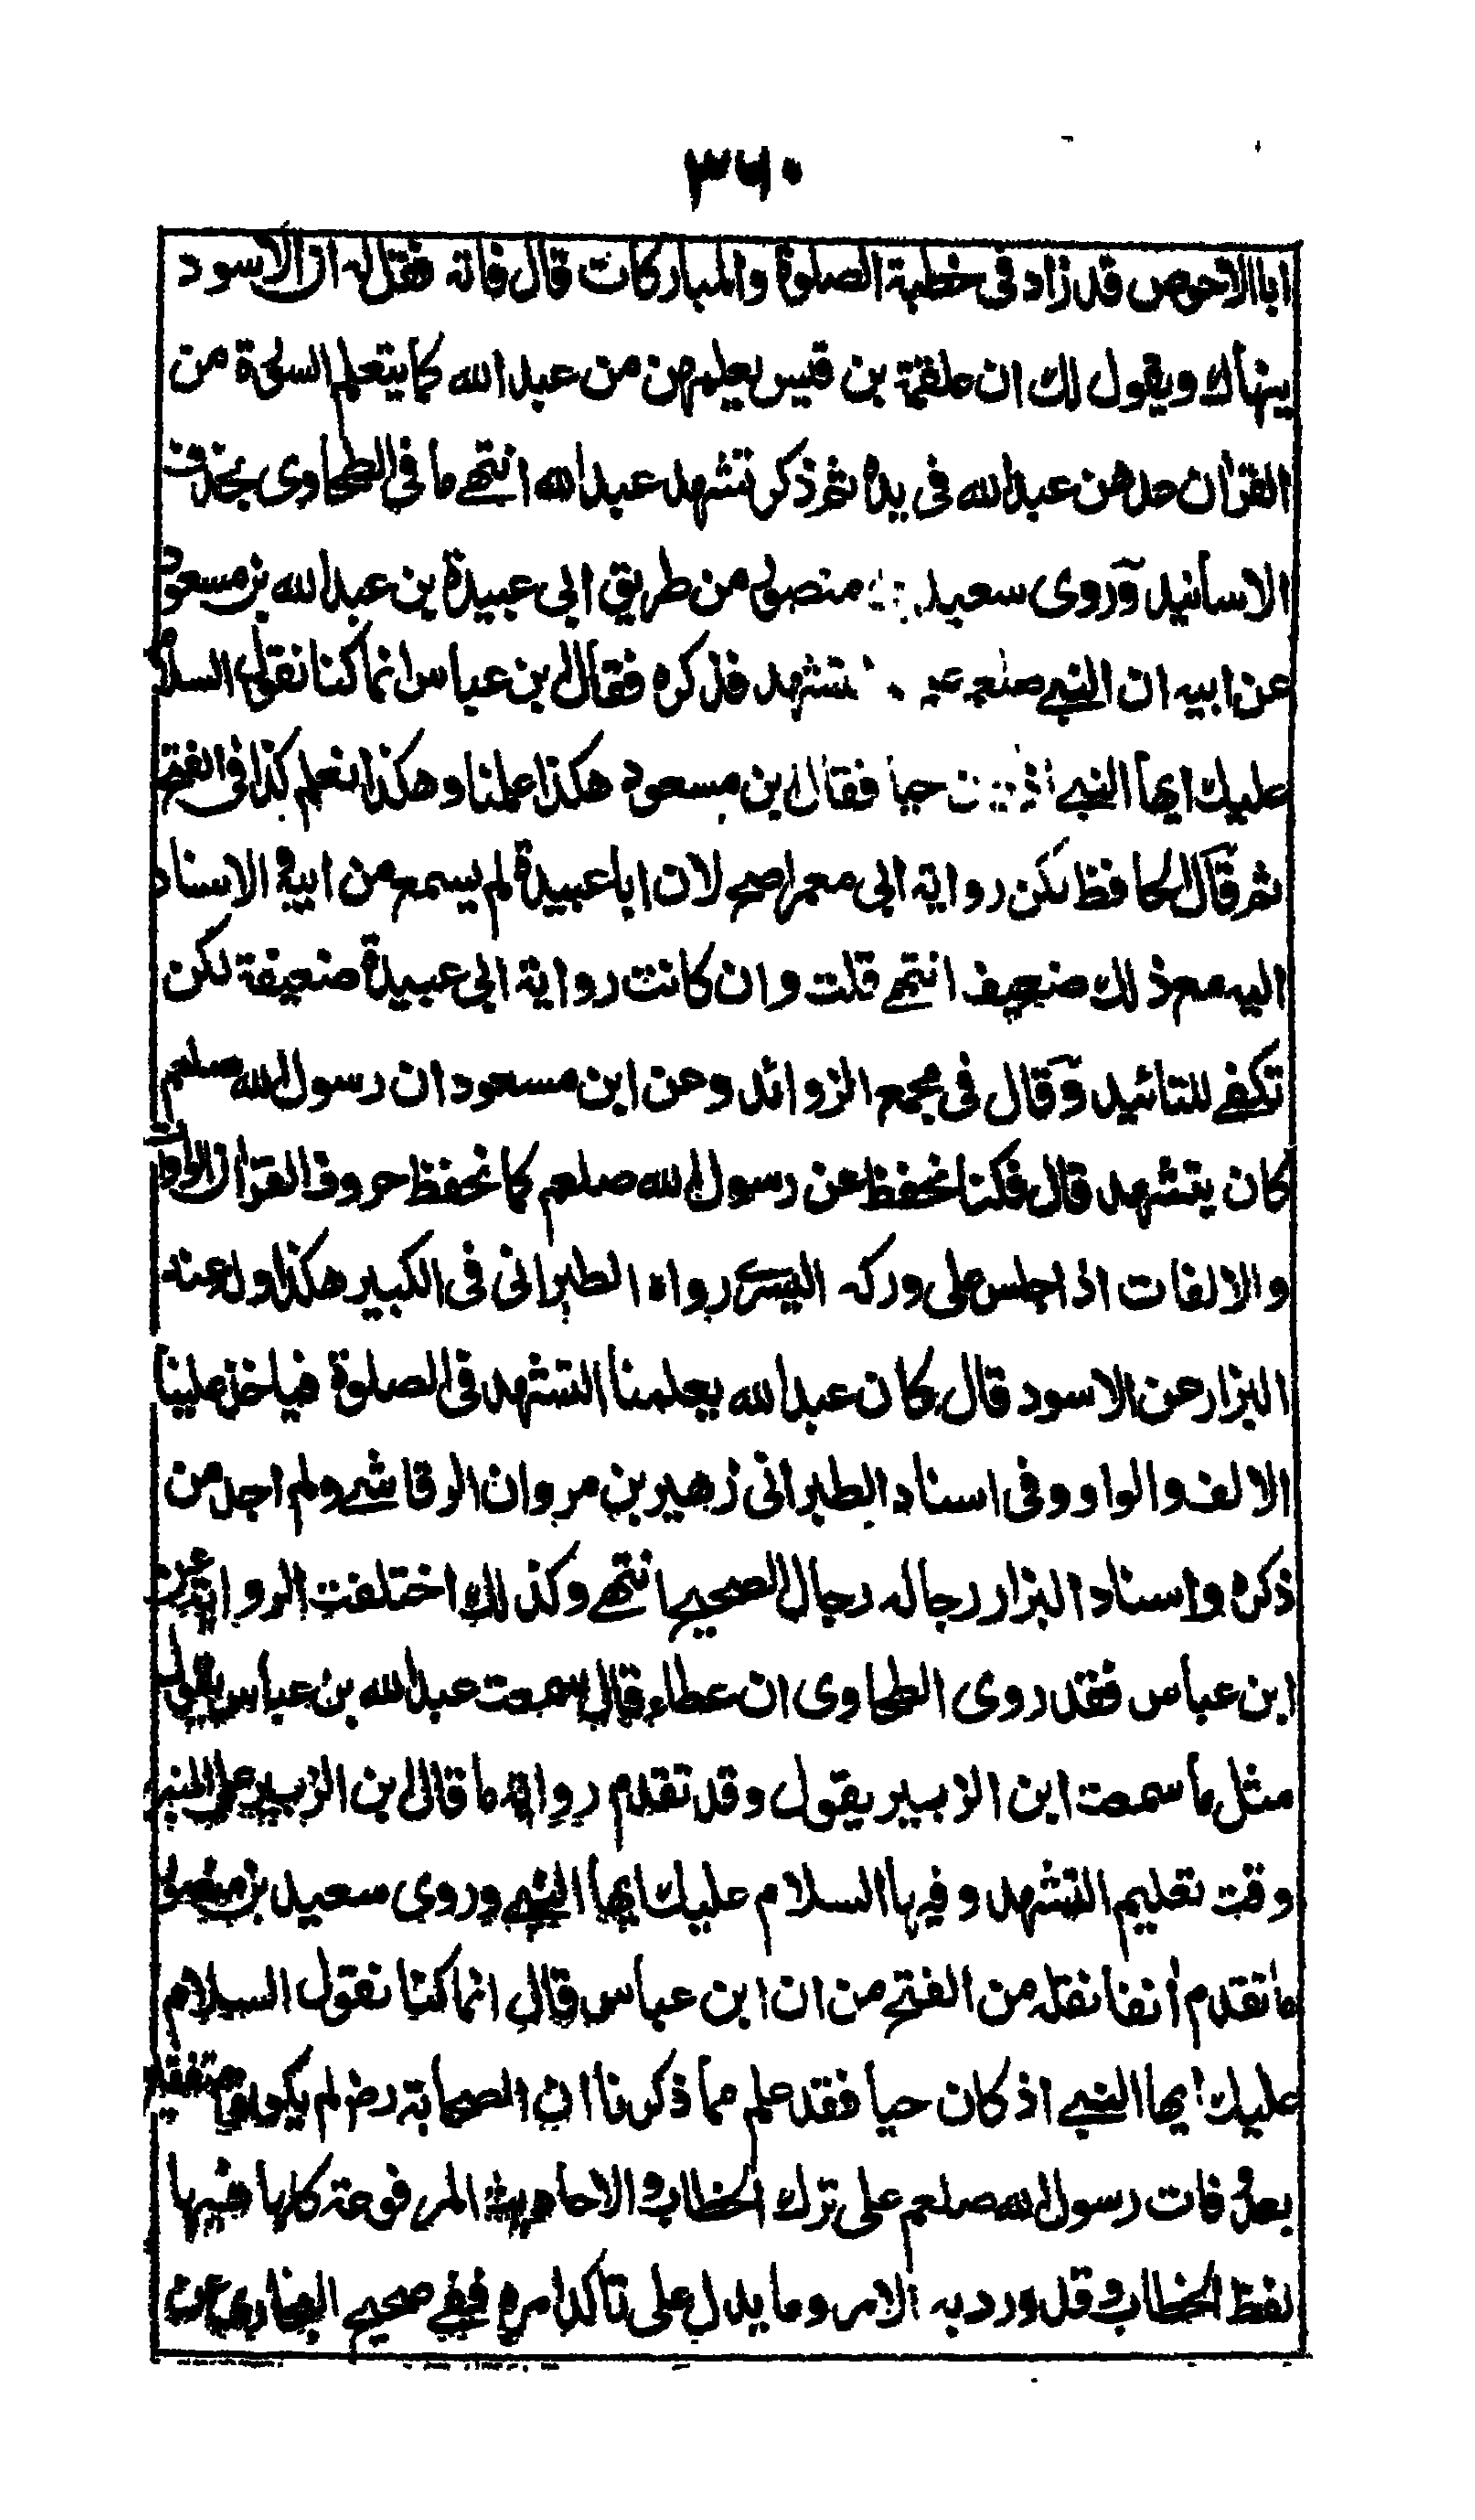 ٣٦٠
ابا الاحوص قد زاد فی خطبة الصلوة والمباركات قال فاته فقل له ان الاسود
ينهاك ويقول لك ان علقمة بن قيس يعلمهن من عبد الله كما يتعلم السورة من
القرآن عدهن عبد الله فی يده ثم ذكر تشهد عبد الله انتهى ما فی الطحاوی بحذف
الاسانيد وروی سعيد بن منصور من طريق ابی عبيدة بن عبد الله بن مسعود
عن ابيه ان النبی تشهد فذكره فقال ابن عباس انما كنا نقول السلام
عليك ايها النبی حيا فقال ابن مسعود هكذا علمنا وهكذا نعلم كذا فی الفتح
ثم قال الحافظ لكن رواية ابی معمر اصح لان ابا عبيدة لم يسمع من ابيه والاسناد
اليه مع ذلك ضعيف انتهى قلت وان كانت رواية ابی عبيدة ضعيفة لكن
تكفی للتائيد وقال فی مجمع الزوائد وعن ابن مسعود ان رسول الله صلعم
كان يتشهد قال فكنا نحفظ عن رسول الله صلعم كما نحفظ حروف القرآن الواوات
والالفات اذا جلس علی وركه اليسری رواه الطبرانی فی الكبير هكذا وله عند
البزار عن الاسود قال كان عبد الله يعلمنا التشهد فی الصلوة فياخذ علينا
الالف والواو وفی اسناد الطبرانی زهير بن مروان الرقاشی ولم اجد من
ذكره واسناد البزار رجاله رجال الصحيح انتهى وكذلك اختلفت الرواية عن
ابن عباس فقد روی الطحاوی ان عطاء قال سمعت عبد الله بن عباس يقول
مثل ما سمعت ابن الزبير يقول وقد تقدم رواية ما قال ابن الزبير علی المنبر
وقت تعليم التشهد وفيها السلام عليك ايها النبی وروی سعيد بن منصور
ما تقدم أنفا نقله من الفتح من ان ابن عباس قال انما كنا نقول السلام
عليك ايها النبی اذ كان حيا فقد علم مما ذكرنا ان الصحابة رض لم يكونوا متفقين
بعد وفات رسول الله صلعم علی ترك الخطاب والاحاديث المرفوعة كلها فيها
لفظ الخطاب وقد ورد به الامر وما يدل علی تاكد امره ففی صحيح البخاری عن